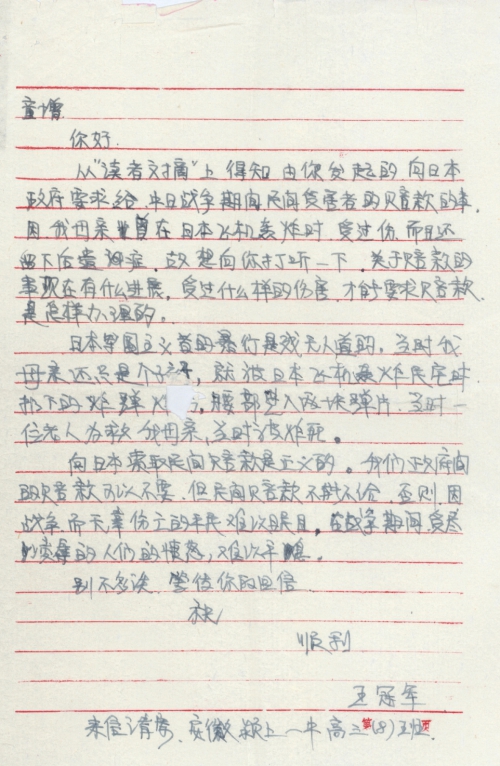 童增
你好.
从"读者文摘"上得知由你发起的向日本
政府要求给中日战争期间民间受害者的赔款的事.
因我母亲曾在日本飞机轰炸时受过伤,而且还
留下后遗症,故想向你打听一下,关于赔款的
事现在有什么进展,受过什么样的伤害才能要求赔款.
是怎样办理的。
日本军国主义者的暴行是残无人道的,当时我
母亲还只是个孩子,就被日本飞机轰炸民宅时
扔下的炸弹 腰部 入 块弹片.当时一
位老人为救我母亲,当时被炸死。
向日本索取民间赔款是正义的。我们政府间
的赔款可以不要,但民间赔款不 不给,否则,因
战争而不幸伤亡的平民难以瞑目,在战争期间受尽
的人们的愤怒,难以平息。
别不多谈 等待你的回信
祝
顺利
王冠军
来信请寄、安徽颍上一中高三(8)班